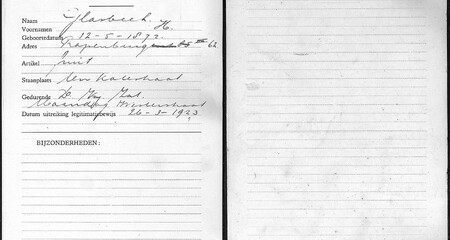 Naam Glasbeek
Voornamen H.
Geboortedatum 12-5-1872
Adres 62
Artikel fruit
Staanplaats Ten Katestraat
Gedurende D. W. Zat.
Maandag Westerstraat
Datum uitreiking legitimatiebewijs 26-3-1923
BIJZONDERHEDEN: